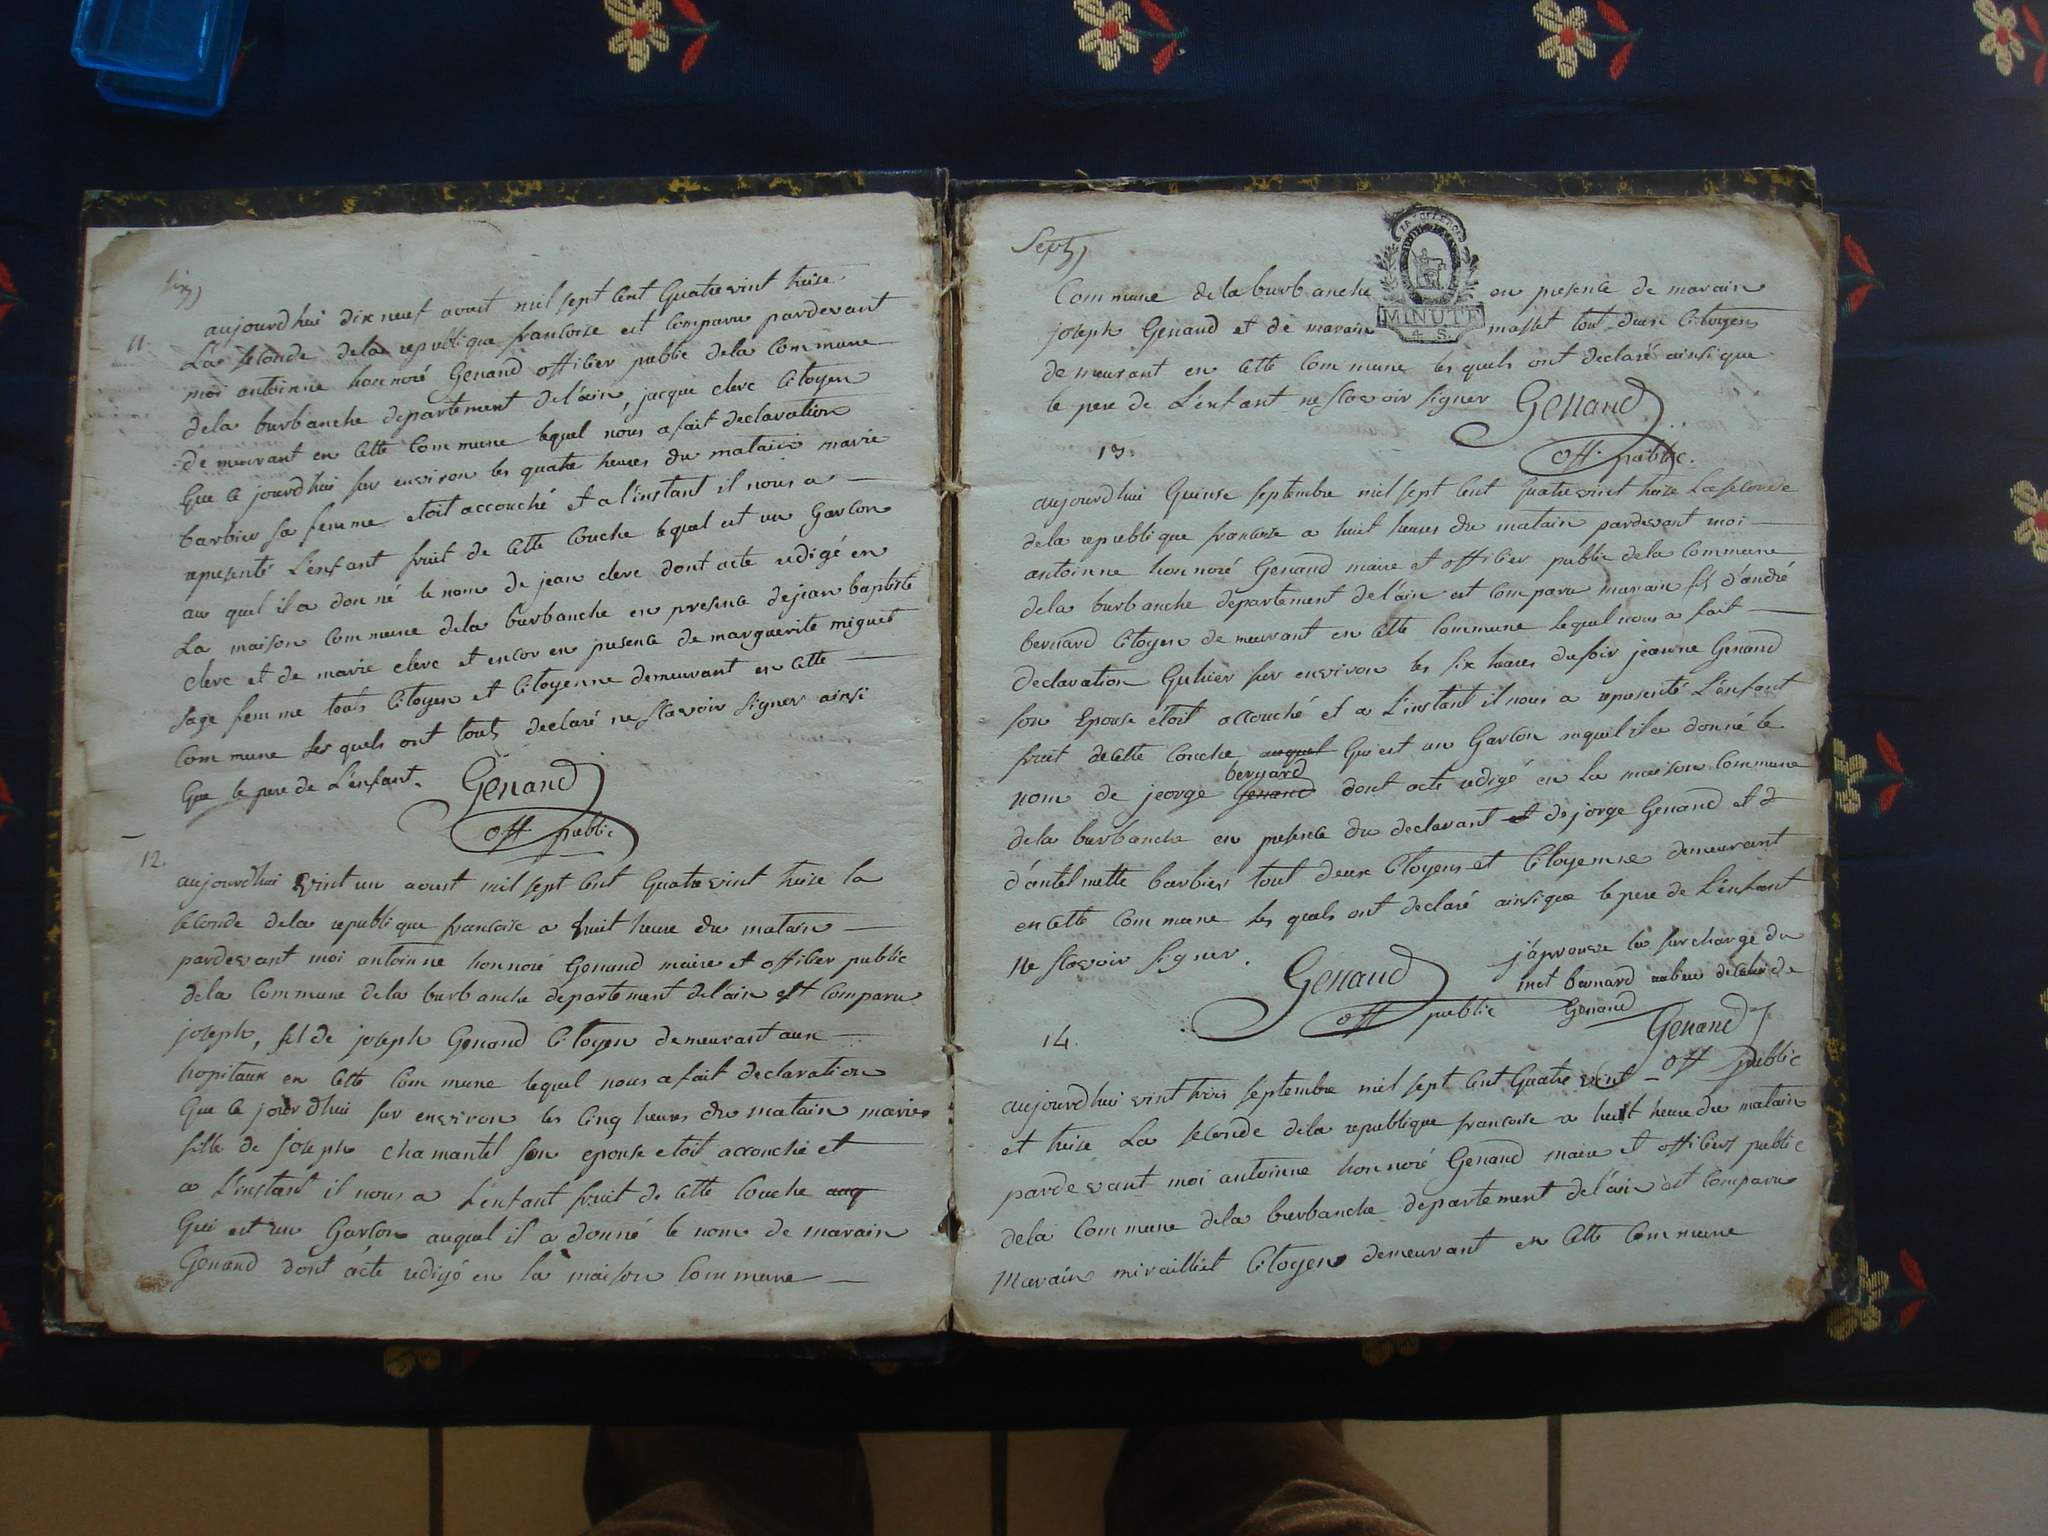 six
11.
aujourdhui dix neuf aout mil sept cent quatre vint treise
La seconde dela republique francoise est comparu pardevant
moi antoinne honnoré Genand officier public dela commune
dela burbanche departement delain, jacque clerc citoyen
demeurant en cette commune lequel nous a fait declaration
que ce jourdhui sur environ les quatre heures du matain marie
barbier sa femme etoit accouché et a l'instant il nous a
representé L'enfant fruit de cette couche lequel est un garcon
au quel il a donné le nom de jean clerc dont acte redigé en
La maison commune dela burbanche en presence de jean baptiste
clerc et de marie clerc et encor en presence de marguerite miguet
sage femme touts citoyen et citoyenne demeurant en cette
commune les quels ont touts declaré ne scavoir signer ainsi
que le pere de L'enfant. Genand
off. public
12.
aujourdhui vint un aoust mil sept cent quatre vint treise la
seconde dela republique francoise a huit heure du matain
pardevant moi antoinne honnoré Genand maire et officier public
dela commune dela burbanche departement delain est comparu
joseph, fil de joseph Genand citoyen demeurant aux
hopitaux en cette commune lequel nous a fait declaration
que ce jourdhui sur environ les cinq heures du matain marie
fille de joseph chamantel son epouse etoit accouché et
a L'instant il nous a L'enfant fruit de cette couche auq
qui est un garcon auquel il a donné le nom de marain
Genand dont acte redigé en la maison commune
Sept
commune dela burbanche en presence de marain
MINUTE
4 S.
joseph Genand et de marain masset tout deux citoyens
demeurant en cette commune les quels ont declaré ainsi que
le pere de L'enfant ne scavoir signer Genand
off. public.
13
aujourdhui quinse septembre mil sept cent quatre vint treise La seconde
dela republique francoise a huit heures du matain pardevant moi
antoinne honnoré Genand maire et officier public dela commune
dela burbanche departement de l'ain est comparu marain fils d'andré
bernard citoyen demeurant en cette commune lequel nous a fait
declaration qu'hier sur environ les six heures du soir jeanne Genand
son Epouse etoit accouché et a L'instant il nous a representé L'enfant
fruit de cette couche auquel qui est un garcon auquel il a donné le
bernard
nom de jeorge Genand dont acte redigé en La maison commune
dela burbanche en presence du declarant et de jorge Genand et d
d'antelmette barbier tout deux citoyens et citoyenne demeurant
en cette commune les quels ont declaré ainsi que le pere de L'enfant
ne scavoir signer.
Genand
off public
j'aprouve la surcharge du
mot bernard au lieu de celui de
Genand
Genand
off public
14.
aujourdhui vint trois septembre mil sept cent quatre vint
et treise La seconde dela republique francoise a huit heure du matain
pardevant moi antoinne honnoré Genand maire et officier public
dela commune dela burbanche departement de l'ain est comparu
Marain miraillet citoyen demeurant en cette commune